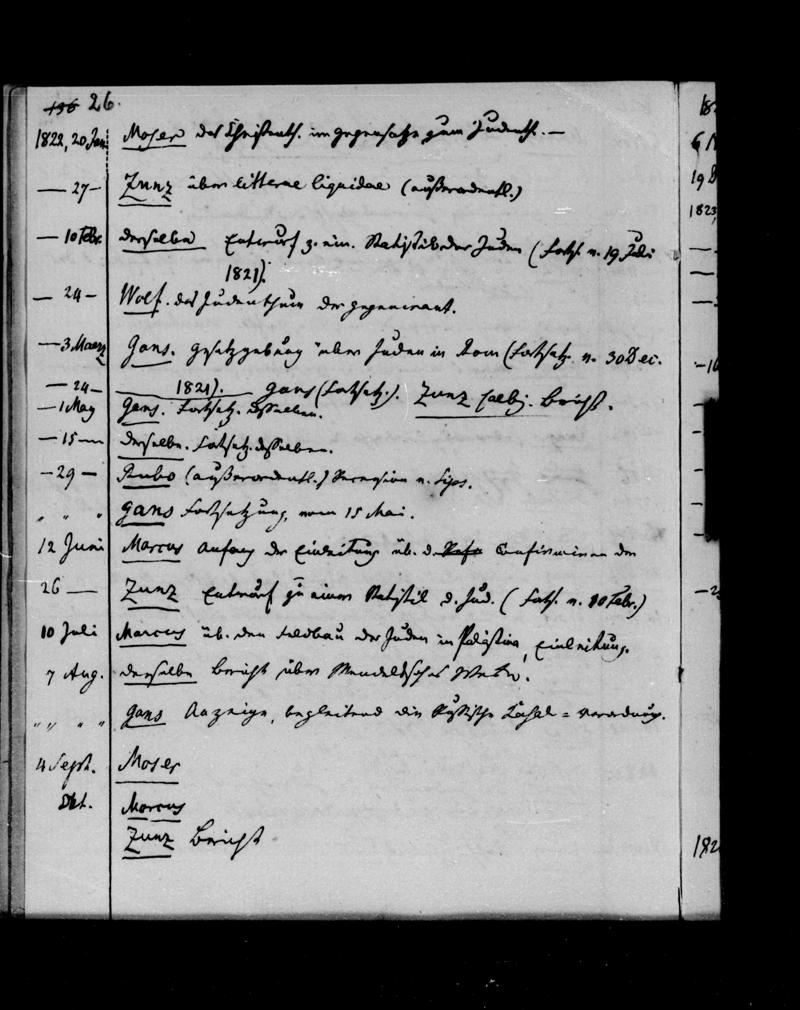 136 26.
1822, 20 Jan. Moser das Christenth. im gegensatze zum Judenth. —
— 27 — Zunz über litterae liquidae (außerordentl.)
— 10 Febr. derselbe Entwurf z. ein. Statistik der Juden (Forts. v. 19 Juli
1821).
— 24 — Wolf. das Judenthum der gegenwart.
— 3 Maerz Gans. gesetzgebung über Juden in Rom (Fortsetz. v. 30 Dec.
— 24 — 1821). Gans (Fortsetz.). Zunz Bericht.
— 1 May Gans. Fortsetz. desselben.
— 15 — derselbe. Fortsetz. desselben.
— 29 — Rubo (außerordentl.) Recension v. Lips.
" " " Gans Fortsetzung, vom 15 Mai.
12 Juni Marcus Anfang der Einleitung üb. d.
26 — Zunz Entwurf zu einer Statistik d. Jud. (Forts. v. 10 Febr.)
10 Juli Marcus üb. den Feldbau der Juden in Palästina, Einleitung.
7 Aug. derselbe Bericht über
" " " " Gans Anzeige, begleitend die = verordnung.
4 Sept. Moser
Okt. Marcus
Zunz Bericht
182
6
19 D
1823,
—
—
—
— 16
— 2
182